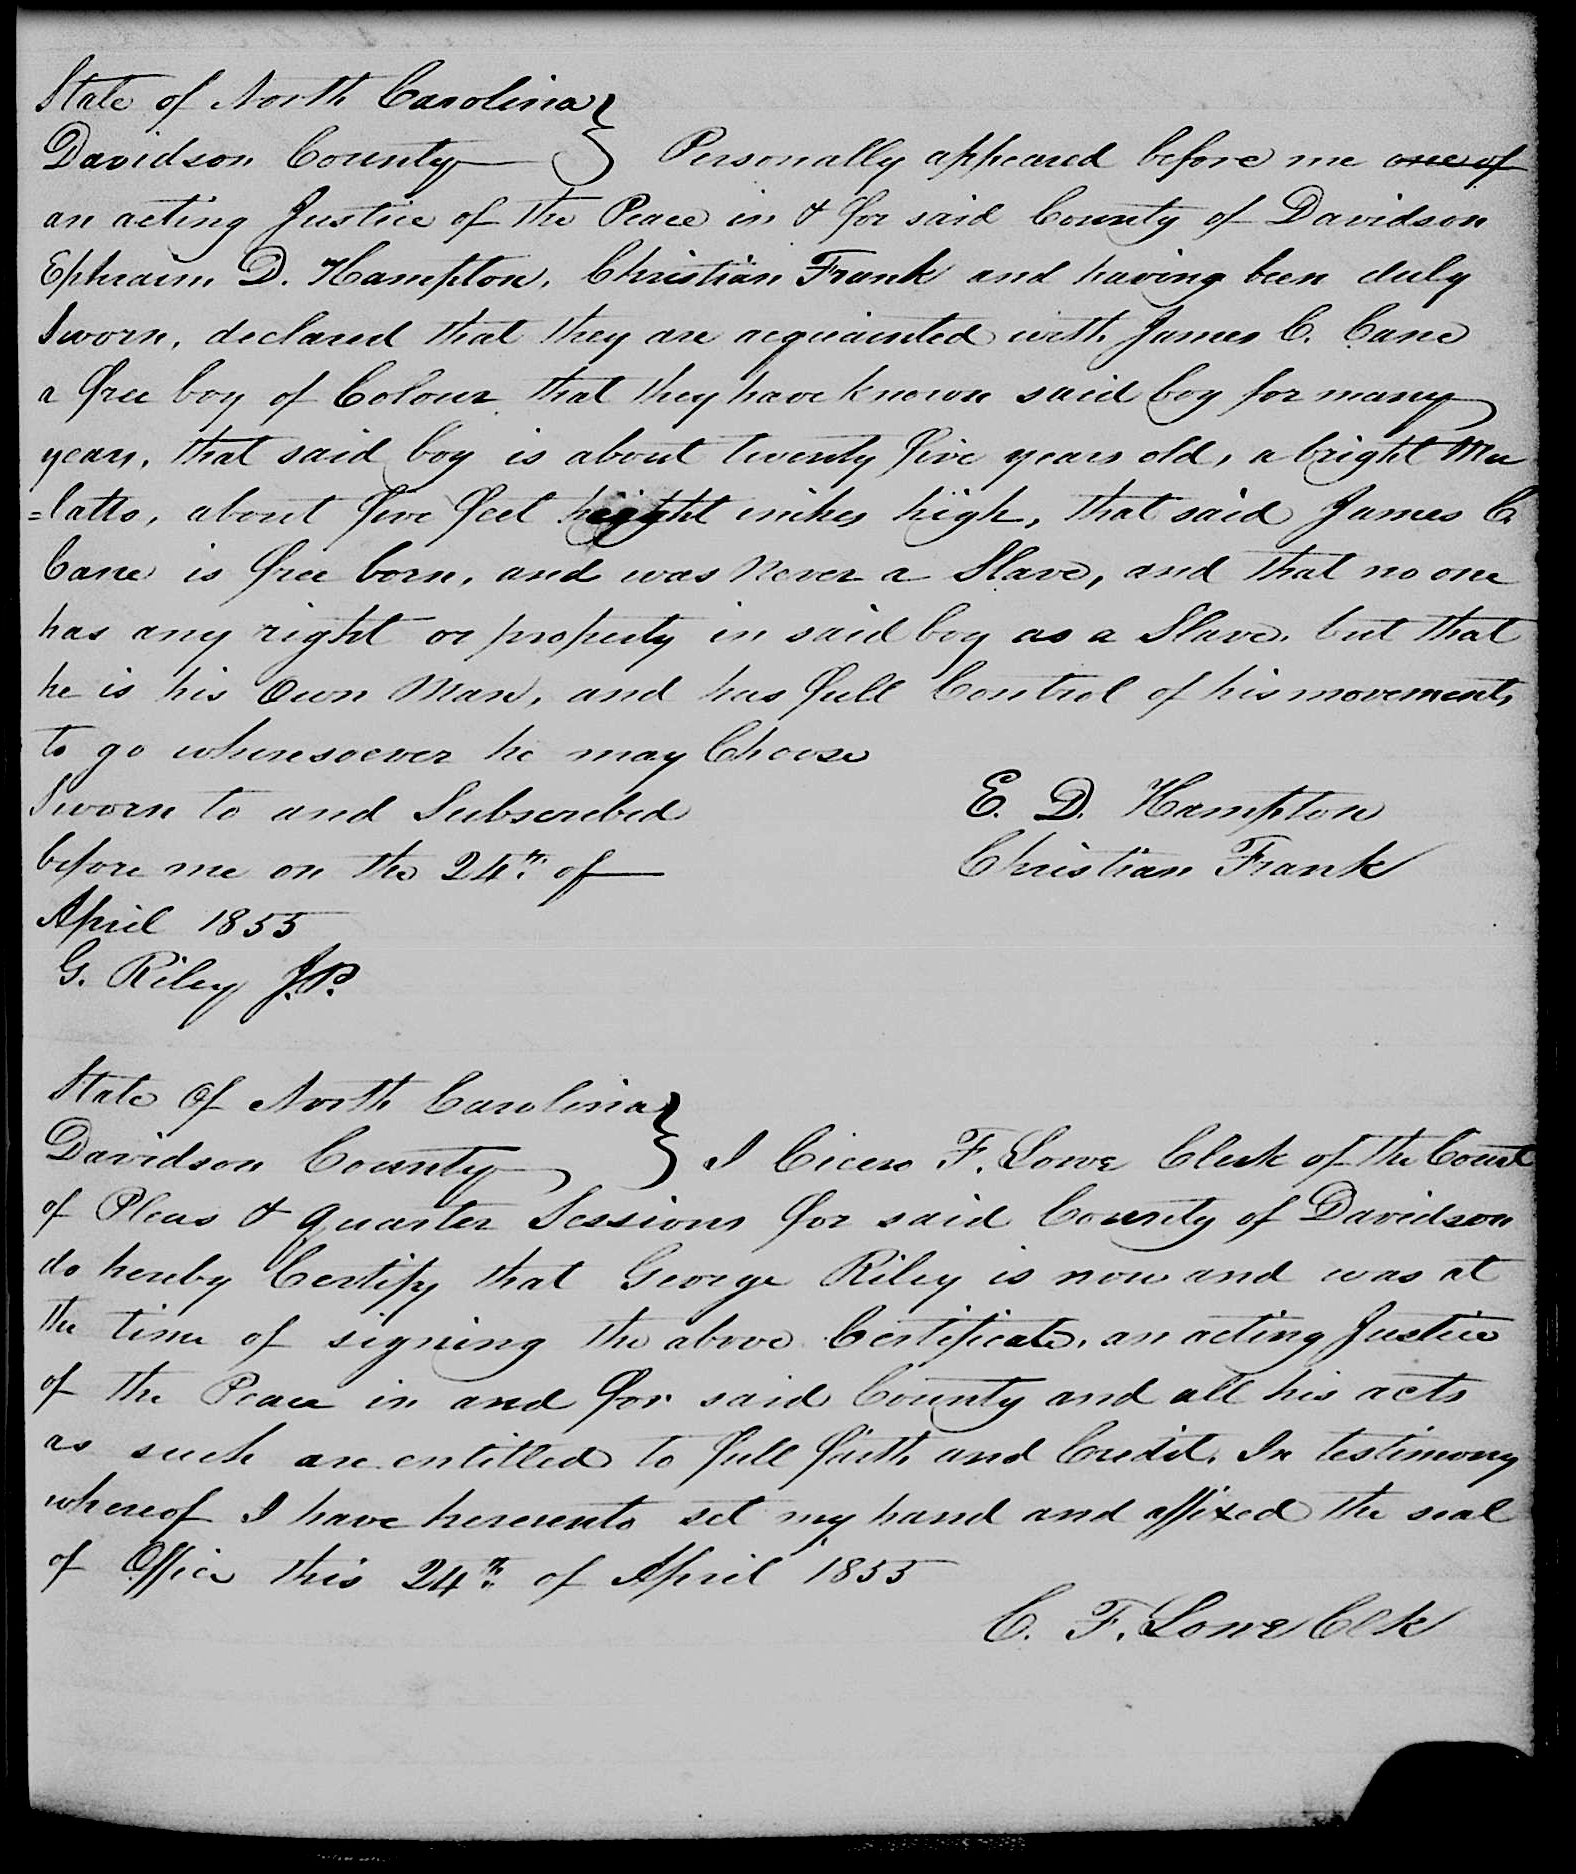 State of North Carolina
Davidson County } Personally appeared before me one of
an acting Justice of the Peace in & for said County of Davidson
Ephraim D. Hampton, Christian Frank and having been duly
Sworn, declared that they are acquainted with James C. Cane
a free boy of Colour that they have known said boy for many
years, that said boy is about twenty five years old, a bright Mu
=latto, about five feet height inches high, that said James C.
Cane is free born, and was Never a Slave, and that no one
has any right or property in said boy as a Slave, but that
he is his Own Man, and has full Control of his movements
to go wheresoever he may Choose
Sworn to and Subscribed
before me on the 24th of
April 1855
G. Riley J.P.
E. D. Hampton
Christian Frank
State Of North Carolina
Davidson County } I Cicero F. Lowe Clerk of the Court
of Pleas & quarter Sessions for said County of Davidson
do hereby Certify that George Riley is now and was at
the time of signing the above Certificate, an acting Justice
of the Peace in and for said County and all his acts
as such are entitled to full faith and Credit. In testimony
whereof I have hereunto set my hand and affixed the seal
of Office this 24th of April 1855
C. F. Lowe Clk